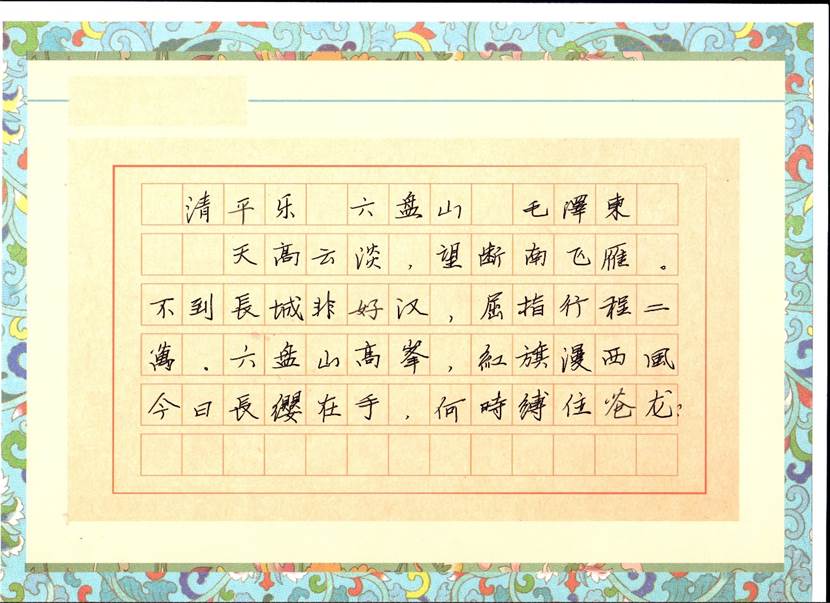 清平乐 六盘山 毛澤東
天高云淡,望断南飞雁。
不到長城非好汉,屈指行程二
萬。六盘山高峯,紅旗漫西風
今日長纓在手,何時縛住苍龙?